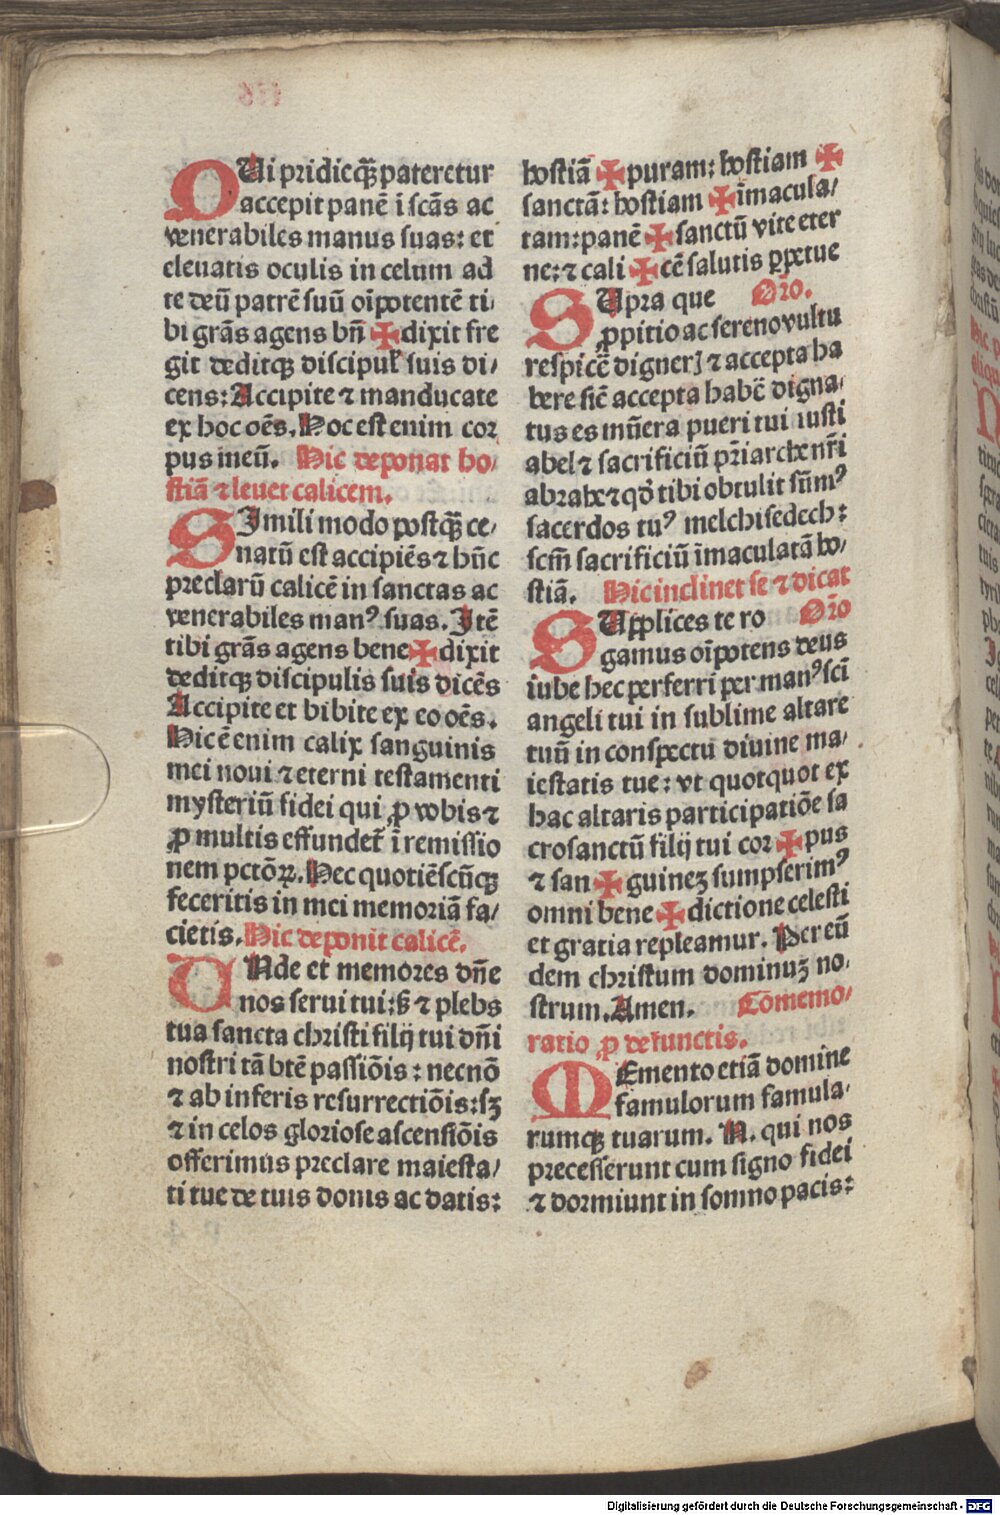 QUi pridie qͣꝫ pateretur
accepit panē ī scās ac
venerabiles manus suas: et
eleuatis oculis in celum ad
te deū patrē suū oīpotentē ti-
bi grās agens bn̄ ✠ dixit fre
git deditqꝫ discipul' suis di/
cens: Accipite ⁊ manducate
ex hoc oēs. Hoc est enim cor
pus meū. Hic deponat ho/
stiā ⁊ leuet calicem.
SImili modo postqͣꝫ ce/
natū est accipiēs ⁊ hūc
preclarū calicē in sanctas ac
venerabiles manꝰ suas. Itē
tibi grās agens bene ✠ dixit
deditqꝫ discipulis suis dicēs
Accipite et bibite ex eo oēs.
Hic ē enim calix sanguinis
mei noui ⁊ eterni testamenti
mysteriū fidei qui ꝓ vobis ⁊
ꝓ multis effundet̄ ī remissio
nem pctōꝝ. Hec quotiēscūqꝫ
feceritis in mei memoriā fa/
cietis. Hic deponit calicē.
UNde et memores dn̄e
nos serui tui: sꝫ ⁊ plebs
tua sancta christi filij tui dn̄i
nostri tā btē passiōis: necnō
⁊ ab inferis resurrectiōis: sꝫ
⁊ in celos gloriose ascensiōis
offerimus preclare maiesta/
ti tue de tuis donis ac datis:
hostiā ✠ puram: hostiam ✠
sanctā: hostiam ✠ īmacula/
tam: panē ✠ sanctū vite eter
ne: ⁊ cali ✠ cē salutis ꝑpetue
SUpra que Orō.
ꝓpitio ac sereno vultu
respicē digneris ⁊ accepta ha
bere sic̄ accepta habē digna-
tus es mūera pueri tui iusti
abel ⁊ sacrificiū pr̄iarche nr̄i
abrahe ⁊ qd̄ tibi obtulit sūmꝰ
sacerdos tuꝰ melchisedech:
scm̄ sacrificiū īmaculatā ho/
stiā. Hic inclinet se ⁊ dicat
SUpplices te ro Orō
gamus oīpotens deus
iube hec perferri per manꝰ sc̄i
angeli tui in sublime altare
tuū in conspectu diuine ma-
iestatis tue: vt quotquot ex
hac altaris participatiōe sa
crosanctū filij tui cor ✠ pus
⁊ san ✠ guineꝫ sumpserimꝰ
omni bene ✠ dictione celesti
et gratia repleamur. Per eū
dem christum dominuꝫ no-
strum. Amen. Cōmemo/
ratio ꝓ defunctis.
MEmento etiā domine
famulorum famula-
rumqꝫ tuarum. N. qui nos
precesserunt cum signo fidei
⁊ dormiunt in somno pacis:
Digitalisierung gefördert durch die Deutsche Forschungsgemeinschaft - DFG